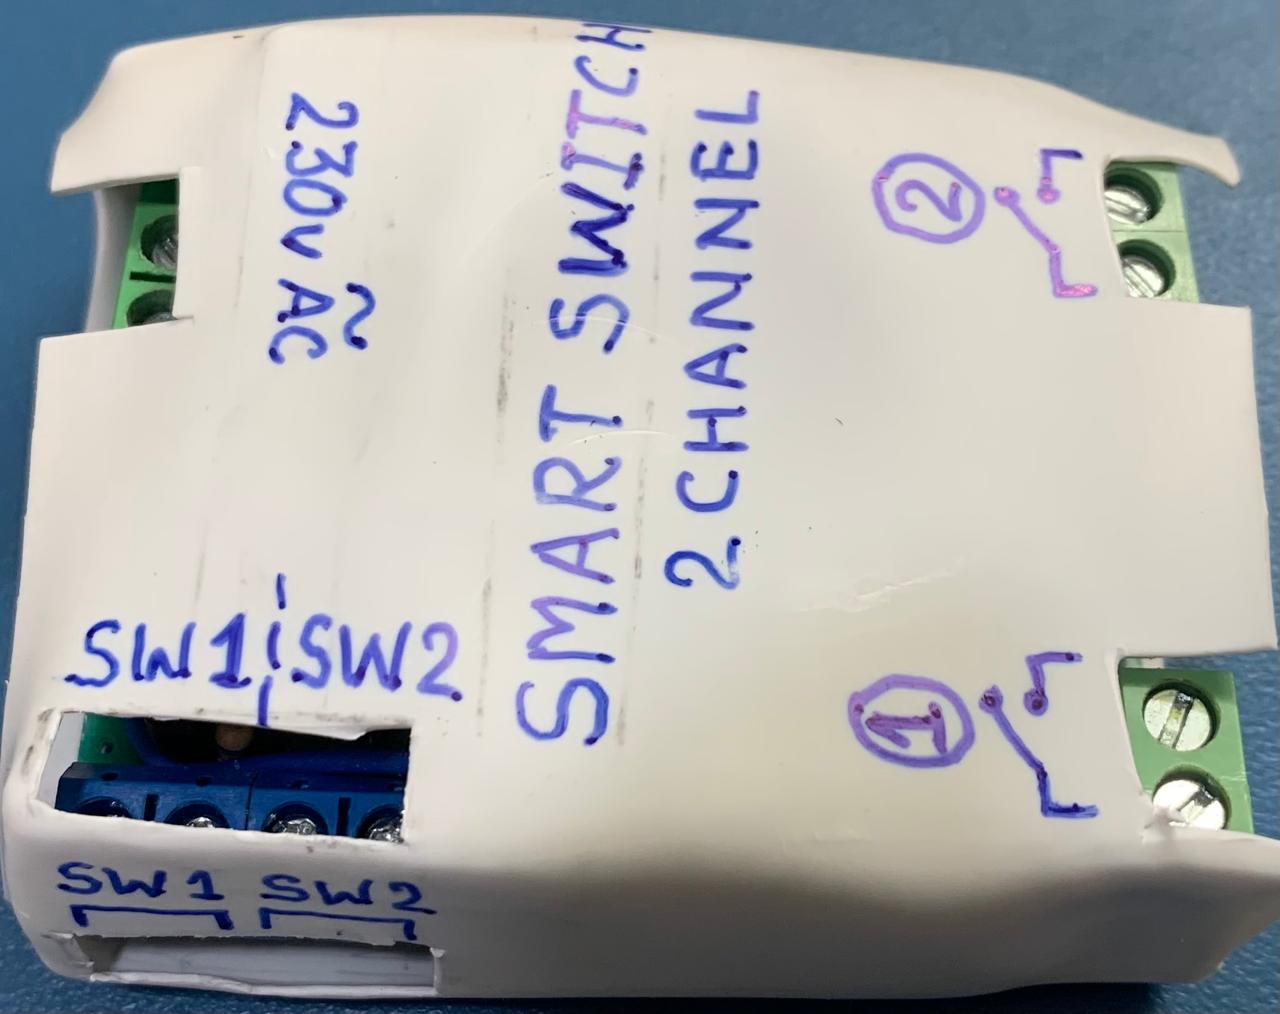 230v AC ~
SMART SWITCH
2 CHANNEL
2
1
SW1 SW2
SW1 SW2